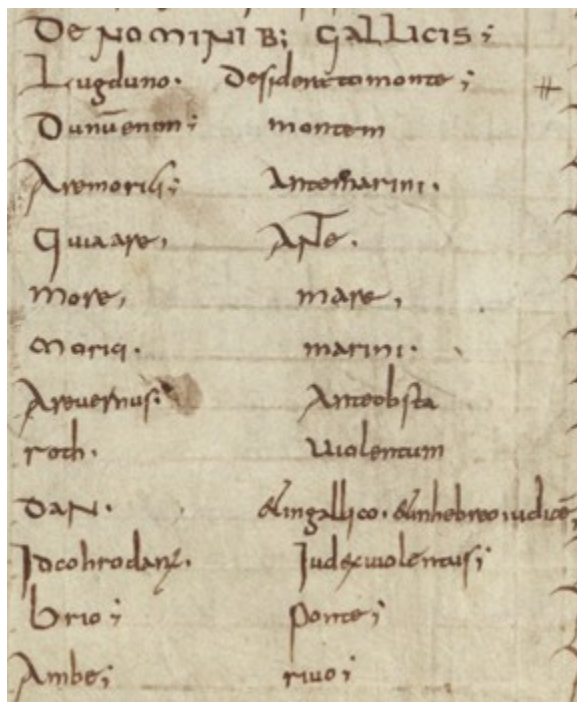 De NOMINIB; GALLICIS;
Lugduno. desiderato monte;
Dunū enim; montem
Aremorici; Antemarini.
Quia are, ANTe.
more, mare,
morici. marini.
Arevernus. Ante obsta
roth. violentum
DAN. & in gallico. & in hebreo iudicē,
Ideo hrodanꝰ. Iudex violentus;
brio; ponte;
Ambe; rivo;